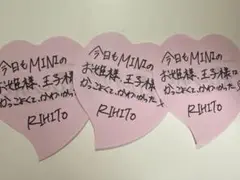 今日もMINIの
お姫様、王子様
かっこよくて、かわいかった
RIHITO
今日もMINIの
お姫様、王子様
かっこよくて、かわいかった
RIHITO
今日もMINIの
お姫様、王子様
かっこよくて、かわいかった
RIHITO